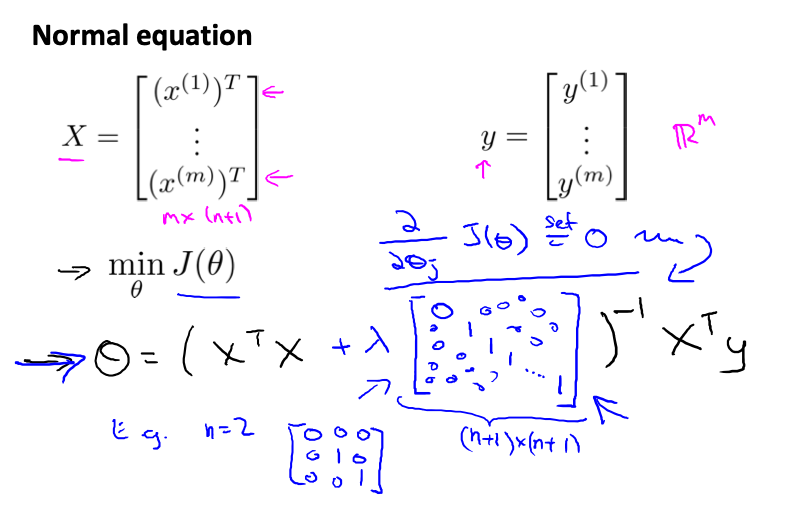 Normal equation
X = [ (x^{(1)})^T ⋮ (x^{(m)})^T ] ←  ←    y = [ y^{(1)} ⋮ y^{(m)} ]    ℝ^m
m × (n+1)    ↑
∂/∂θ_j J(θ) set = 0
→ min_θ J(θ)
→ θ = ( X^T X + λ [ 0 0 0 0 0 1 0 0 0 1 0 0 1 0 0 .... 1 ] )^{-1} X^T y
(n+1)×(n+1)
E.g. n=2 [ 0 0 0 0 1 0 0 0 1 ]